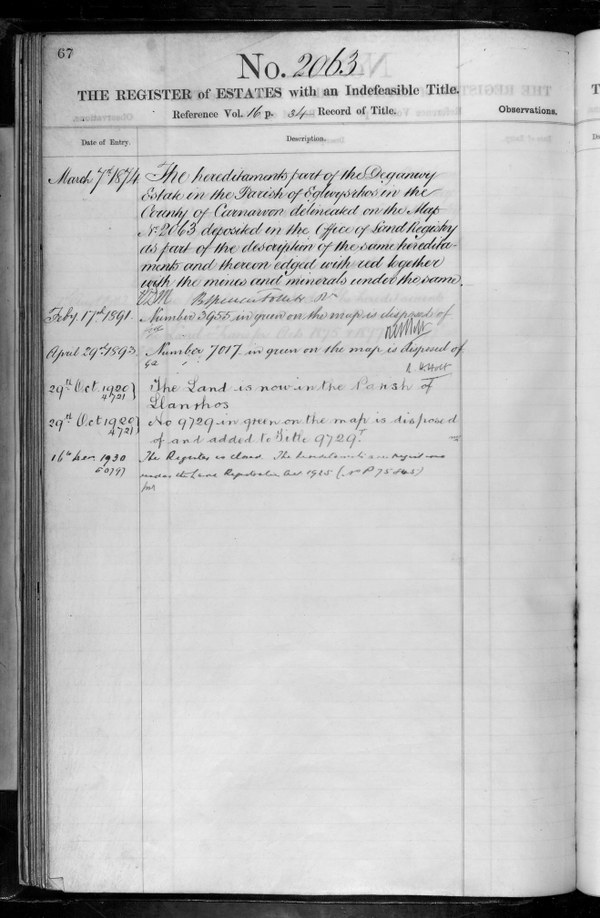 67
No. 2063
THE REGISTER of ESTATES with an Indefeasible Title.
Reference Vol. 16 p. 34 Record of Title.
Observations.
Date of Entry.
Description.
March 7th 1874. The hereditaments part of the Deganwy
Estate in the Parish of Eglwysrhos in the
County of Carnarvon delineated on the Map
No. 2063 deposited in the Office of Land Registry
as part of the description of the same heredita-
ments and thereon edged with red together
with the mines and minerals under the same.
Feby 17th 1891. Number 3955 in green on the map is disposed of
April 29th 1893. Number 7017 in green on the map is disposed of
R. H. Holt
29th Oct 1920 } The Land is now in the Parish of
4721
Llanrhos
29th Oct 1920 } No 9729 in green on the map is disposed
4721
of and added to Title 9729.
16th 1930 The Register is closed. The hereditaments are registered
under the Land Registration Act 1925 (No P 75845)